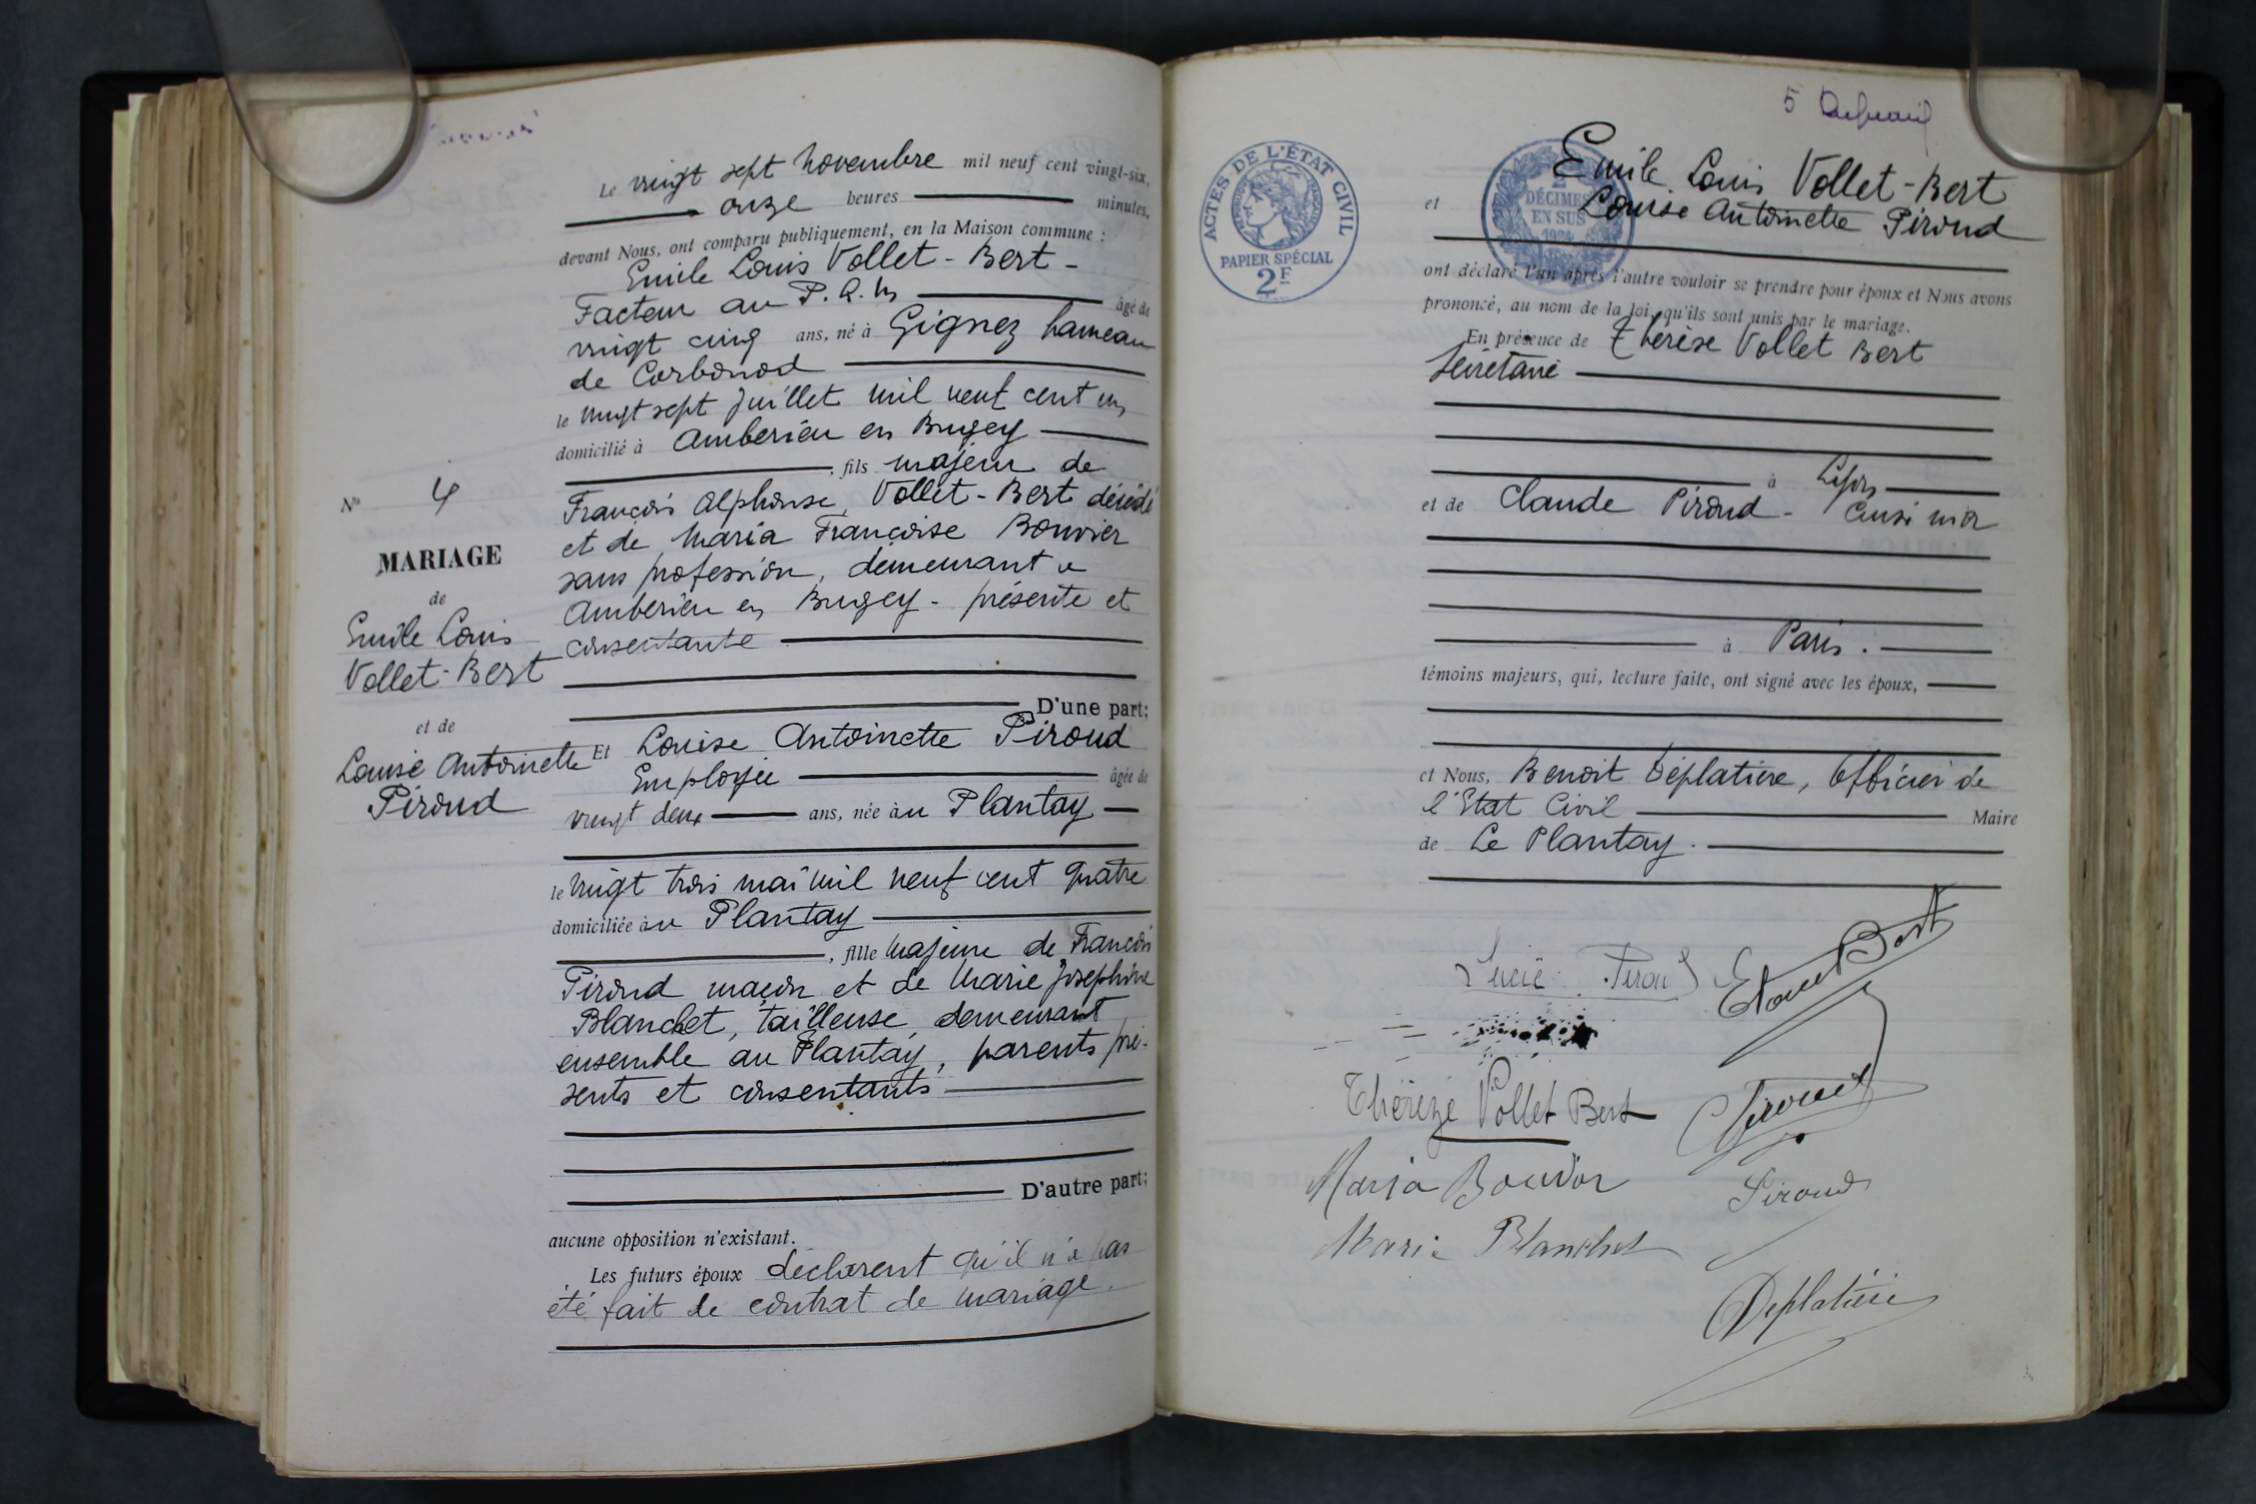 Le vingt sept novembre mil neuf cent vingt-six,
onze heures minutes,
devant Nous, ont comparu publiquement, en la Maison commune :
Emile Louis Vollet-Bert -
Facteur au P. L. M âgé de
vingt cinq ans, né à Gignez hameau
de Corbonod
le vingt sept juillet mil neuf cent un
domicilié à Amberieu en Bugey
, fils majeur de
François Alphonse Vollet-Bert décédé
et de Maria Françoise Bouvier
sans profession, demeurant a
Amberieu en Bugey - présente et
consentante
D'une part;
Et Louise Antoinette Piroud
Employée âgée de
vingt deux ans, née àu Plantay
le vingt trois mai mil neuf cent quatre
domiciliée àu Plantay
, fille majeure de François
Piroud maçon et de Marie Josephine
Blanchet, tailleuse, demeurant
ensemble au Plantay, parents pré-
sents et consentants
D'autre part;
aucune opposition n'existant.
Les futurs époux déclarent qu'il n'a pas
été fait de contrat de mariage.
No 4
MARIAGE
de
Emile Louis
Vollet-Bert
et de
Louise Antoinette
Piroud
5
ACTES DE L'ÉTAT CIVIL
PAPIER SPÉCIAL
2F
2
DÉCIMES
EN SUS
1924
Emile Louis Vollet-Bert
et Louise Antoinette Piroud
ont déclaré l'un après l'autre vouloir se prendre pour époux et Nous avons
prononcé, au nom de la loi, qu'ils sont unis par le mariage.
En présence de Thérèse Vollet Bert
secrétaire
à Lyon
et de Claude Piroud -
à Paris.
témoins majeurs, qui, lecture faite, ont signé avec les époux,
et Nous, Benoit Déplatière, Officier de
l'Etat Civil Maire
de Le Plantay.
Piroud
Thérèze Vollet Bert
Maria Bouvier
Piroud
Marie Blanchet
Deplatière